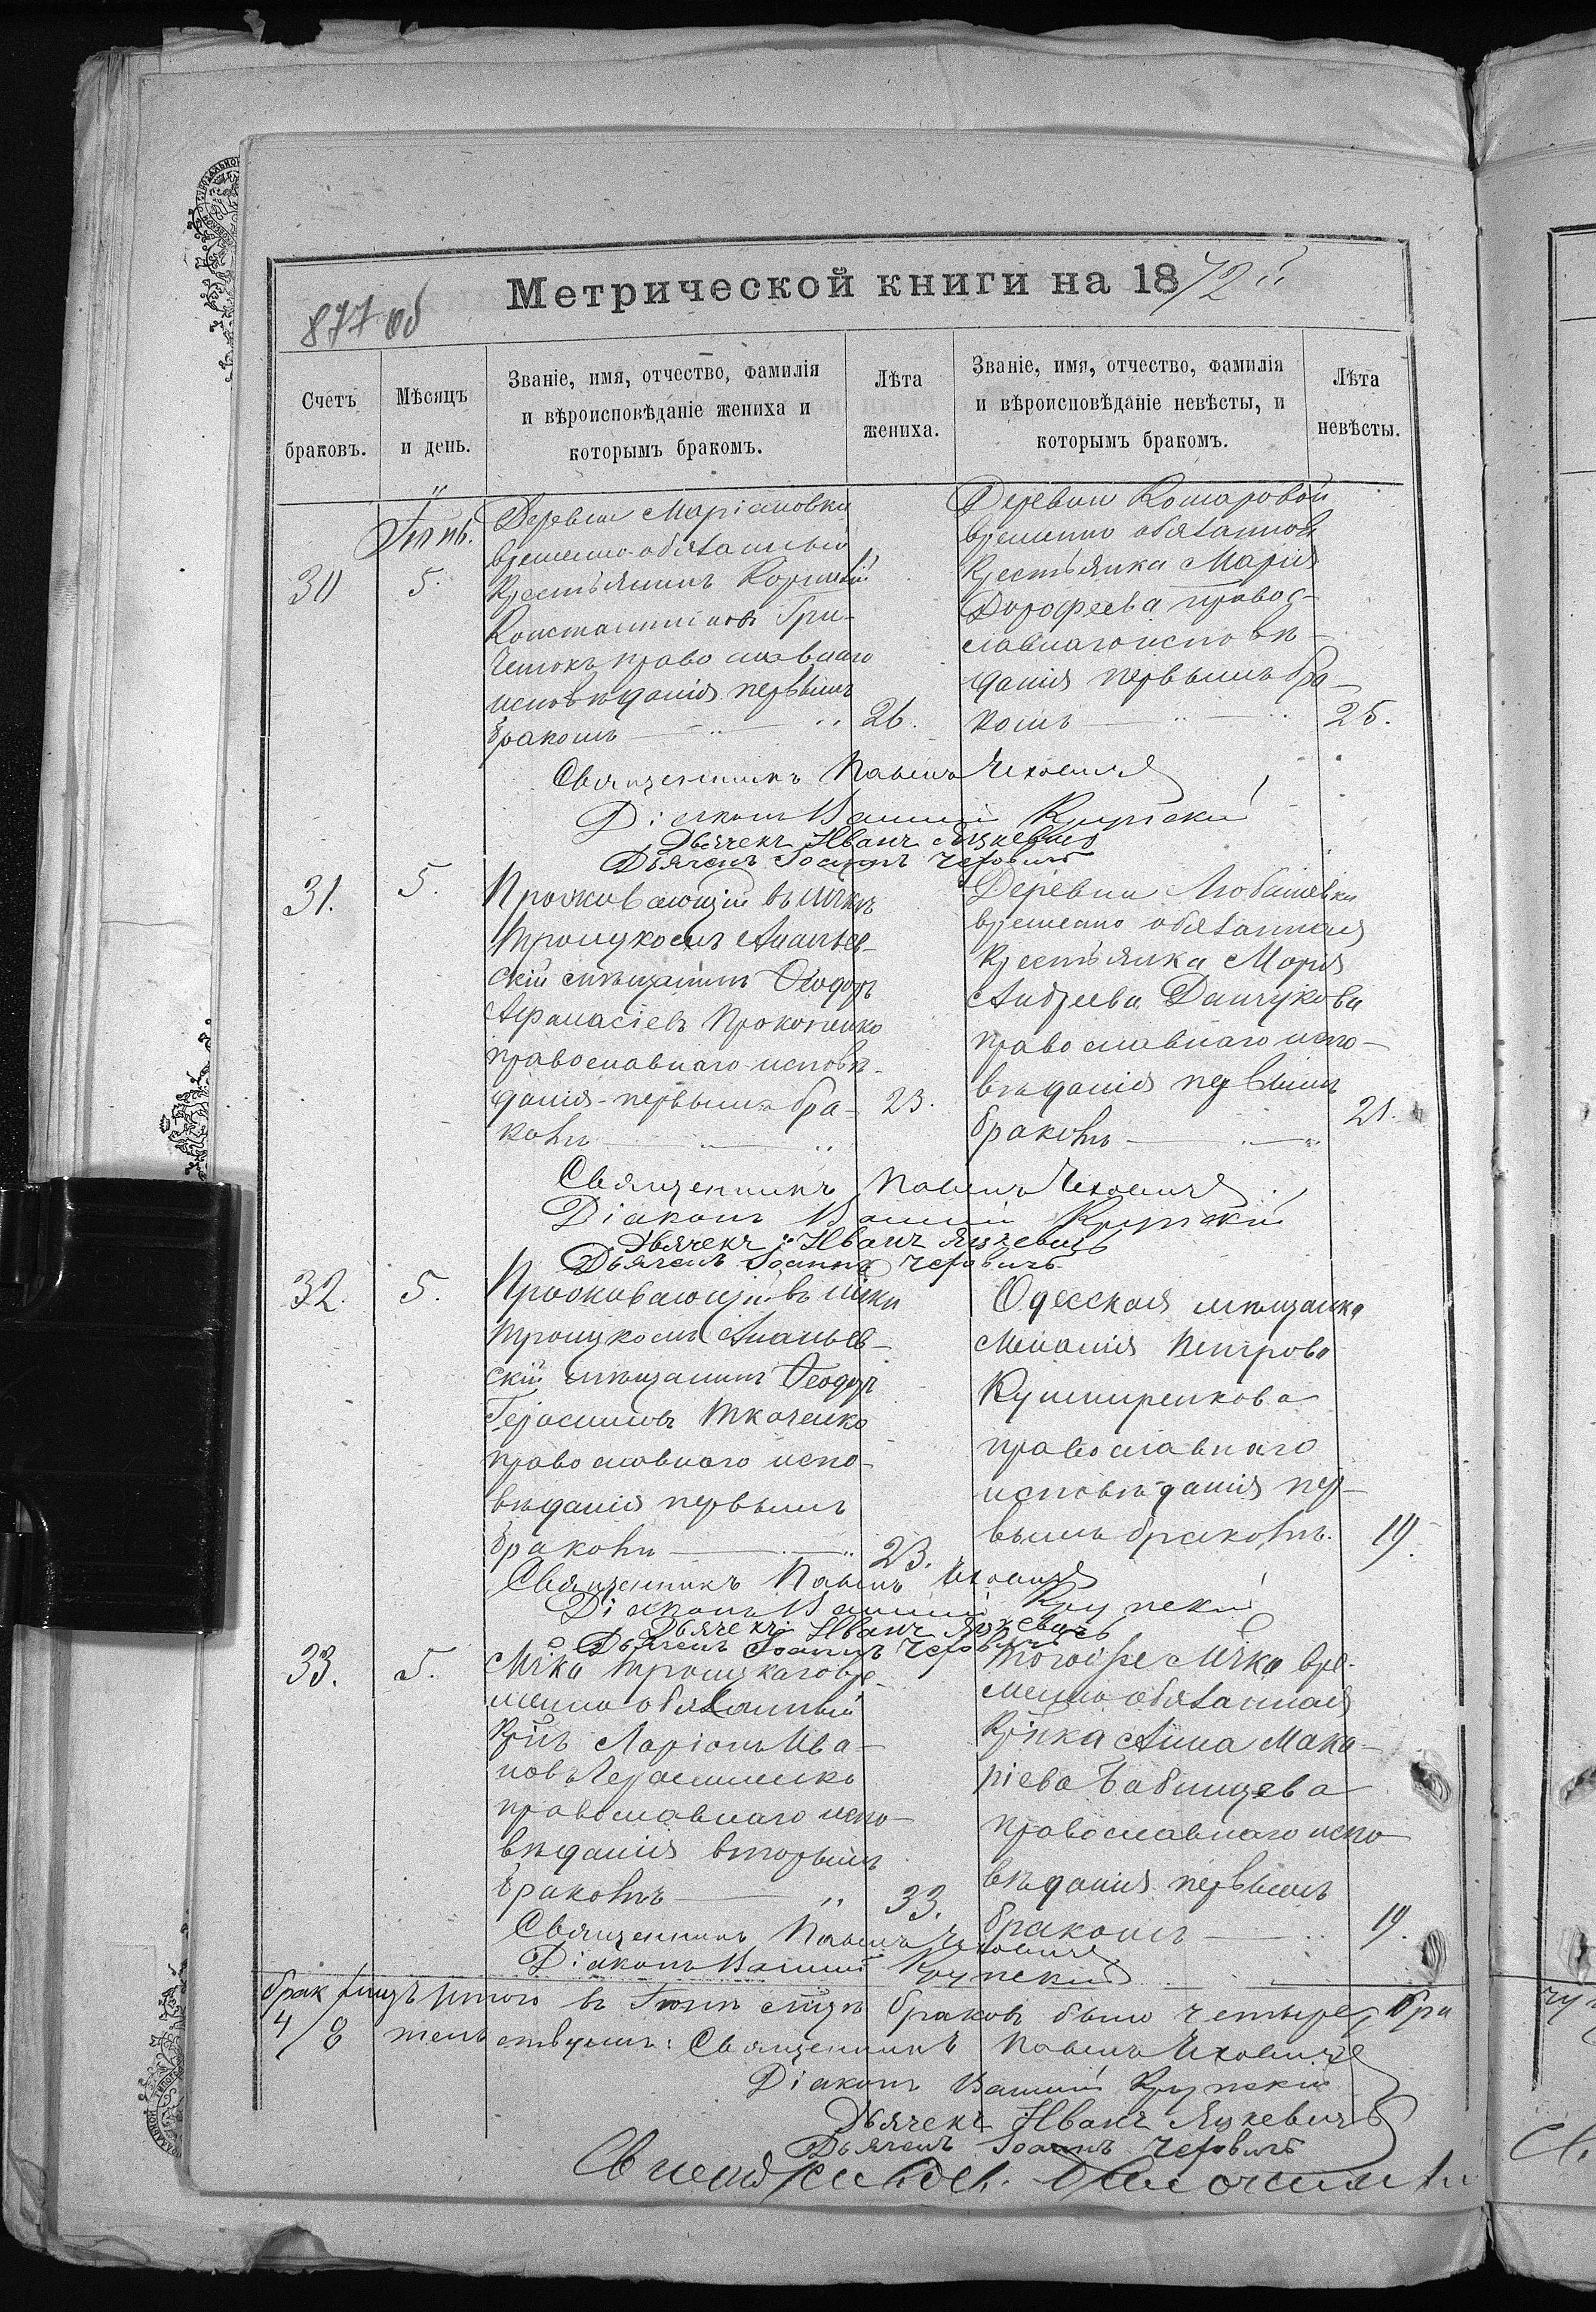 Метрической книги на 1872й
877 об
Счетъ браковъ.
Мѣсяцъ и день.
Званіе, имя, отчество, фамилія и вѣроисповѣданіе жениха и которымъ бракомъ.
Лѣта жениха.
Званіе, имя, отчество, фамилія и вѣроисповѣданіе невѣсты, и которымъ бракомъ.
Лѣта невѣсты.
30
5.
Деревни Маріановки
временно-обязанный
Крестьянинъ Корнилій
Константиновъ Гри-
ченокъ православнаго
исповѣданія первымъ
бракомъ
26.
Деревни Комаровой
временно обязанной
Крестьянка Марія
Дорофеева правос-
лавнаго исповѣ-
данія первымъ бра-
комъ
25.
Священникъ Павелъ
Діаконъ Крупскій
Дьячекъ Иванъ Яцкевичъ
Дьячекъ Іоаннъ
31.
5.
Проживающій въ мѣчкѣ
Троицкомъ Ананьев-
скій мѣщанинъ Ѳеодоръ
Афанасіевъ Прокопенко
православнаго исповѣ-
данія первымъ бра-
комъ
23.
Деревни Любашевки
временно обязанная
Крестьянка Марія
Андреева Данчукова
православнаго испо-
вѣданія первымъ
бракомъ
21.
Священникъ Павелъ
Діаконъ Крупскій
Дьячекъ Иванъ Яцкевичъ
Дьячекъ Іоаннъ
32.
5.
Проживающій въ мѣчки
Троицкомъ Ананьев-
скій мѣщанинъ Ѳеодоръ
Герасимовъ Ткаченко
православнаго испо-
вѣданія первымъ
бракомъ
23.
Одесская мѣщанка
Меланія Петрова
Кушниренкова
православнаго
исповѣданія пер-
вымъ бракомъ.
19.
Священникъ Павелъ
Діаконъ Крупскій
Дьячекъ Иванъ Яцкевичъ
Дьячекъ Іоаннъ
33.
5.
Мѣчка Троицкаго вре-
менно обязанный
Кр-нъ Ларіонъ Ива-
новъ Герасименко
православнаго испо-
вѣданія вторымъ
бракомъ
33.
Того же Мѣчка вре-
менно обязанная
Кр-нка Анна Мака-
ріева Бабинцева
православнаго испо
вѣданія первымъ
бракомъ
19.
Священникъ Павелъ
Діаконъ Крупскій
брак лицъ Итого въ браковъ было четыре
4/8
Священникъ Павелъ
Діаконъ Крупскій
Дьячекъ Иванъ Яцкевичъ
Дьячекъ Іоаннъ